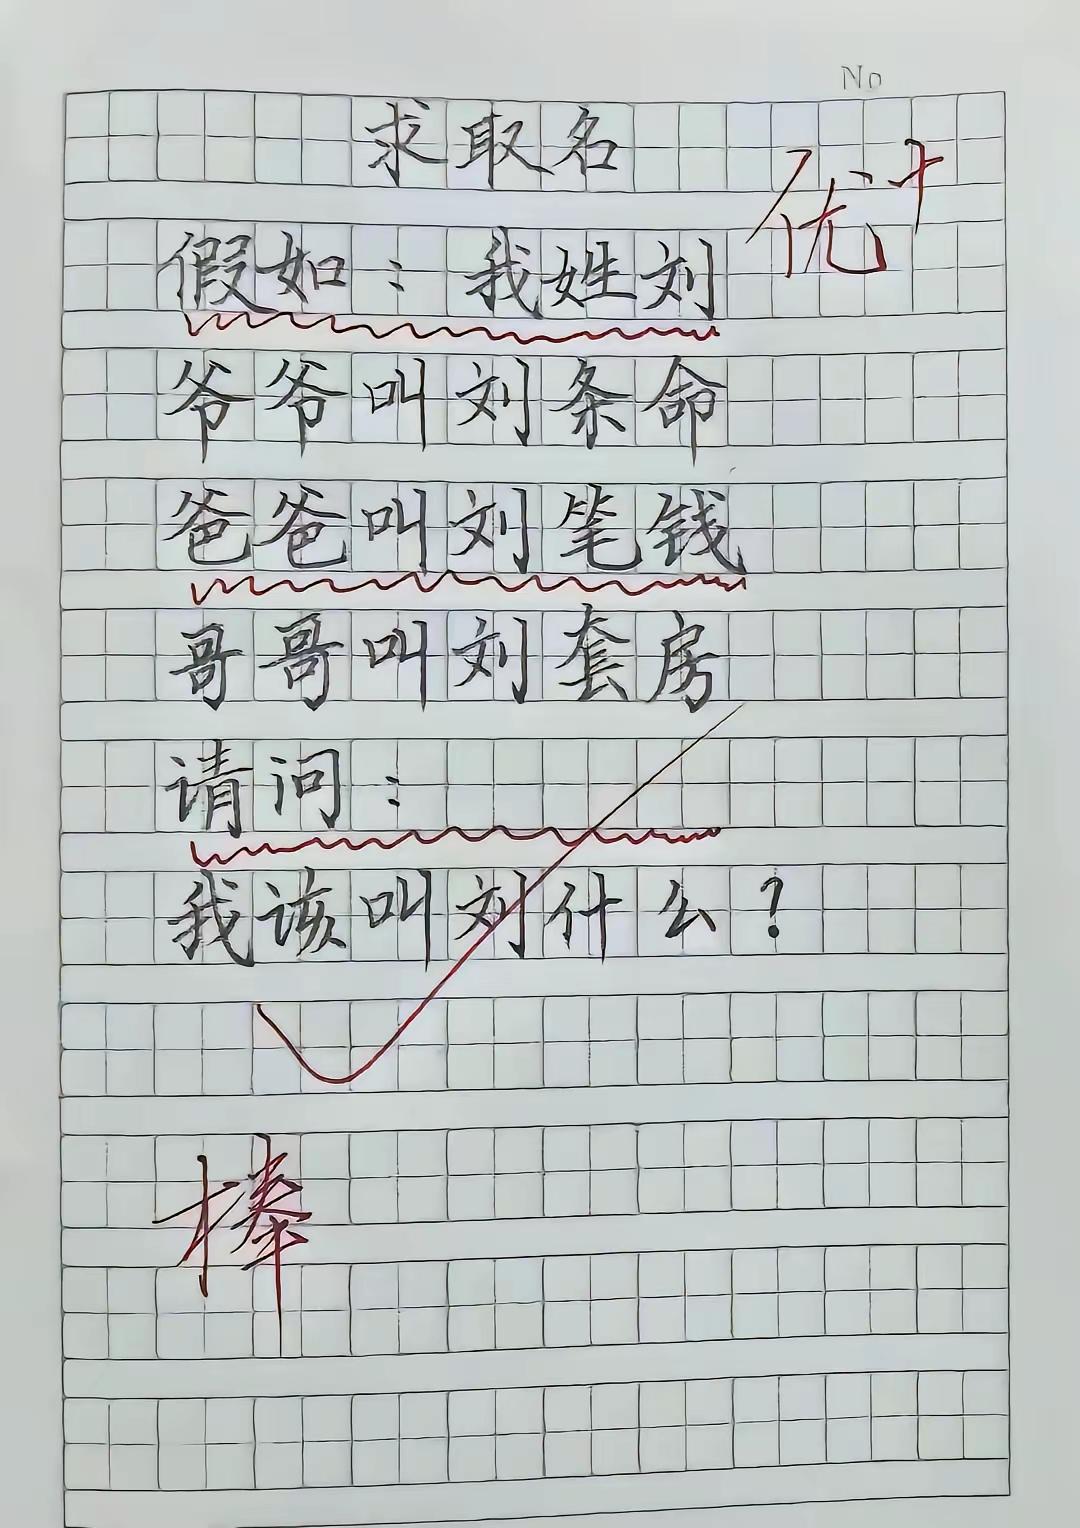 No
求取名
优+
假如：我姓刘
爷爷叫刘条命
爸爸叫刘笔钱
哥哥叫刘套房
请问：
我该叫刘什么？
棒